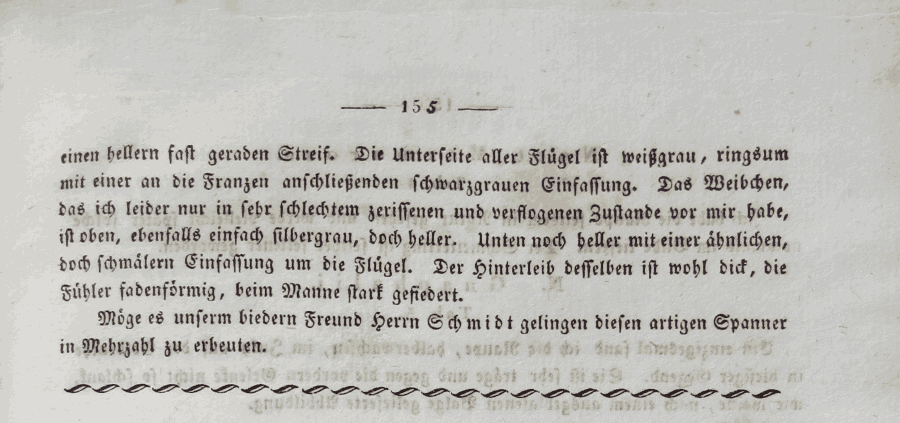 — 155 —
einen hellern fast geraden Streif. Die Unterseite aller Flügel ist weißgrau, ringsum
mit einer an die Franzen anschließenden schwarzgrauen Einfassung. Das Weibchen,
das ich leider nur in sehr schlechtem zerissenen und verflogenen Zustande vor mir habe,
ist oben, ebenfalls einfach silbergrau, doch heller. Unten noch heller mit einer ähnlichen,
doch schmälern Einfassung um die Flügel. Der Hinterleib desselben ist wohl dick, die
Fühler fadenförmig, beim Manne stark gefiedert.
Möge es unserm biedern Freund Herrn Schmidt gelingen diesen artigen Spanner
in Mehrzahl zu erbeuten.